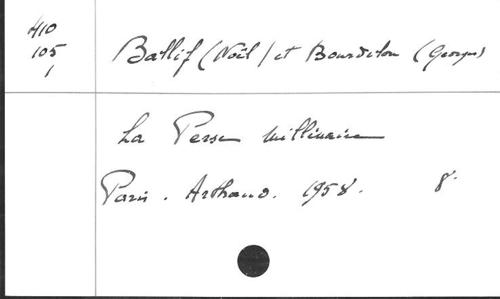 410
105
1
Ballif (Noël) et Bourdelon (Georges)
La Perse millénaire
Paris. Arthaud. 1958. 8°.